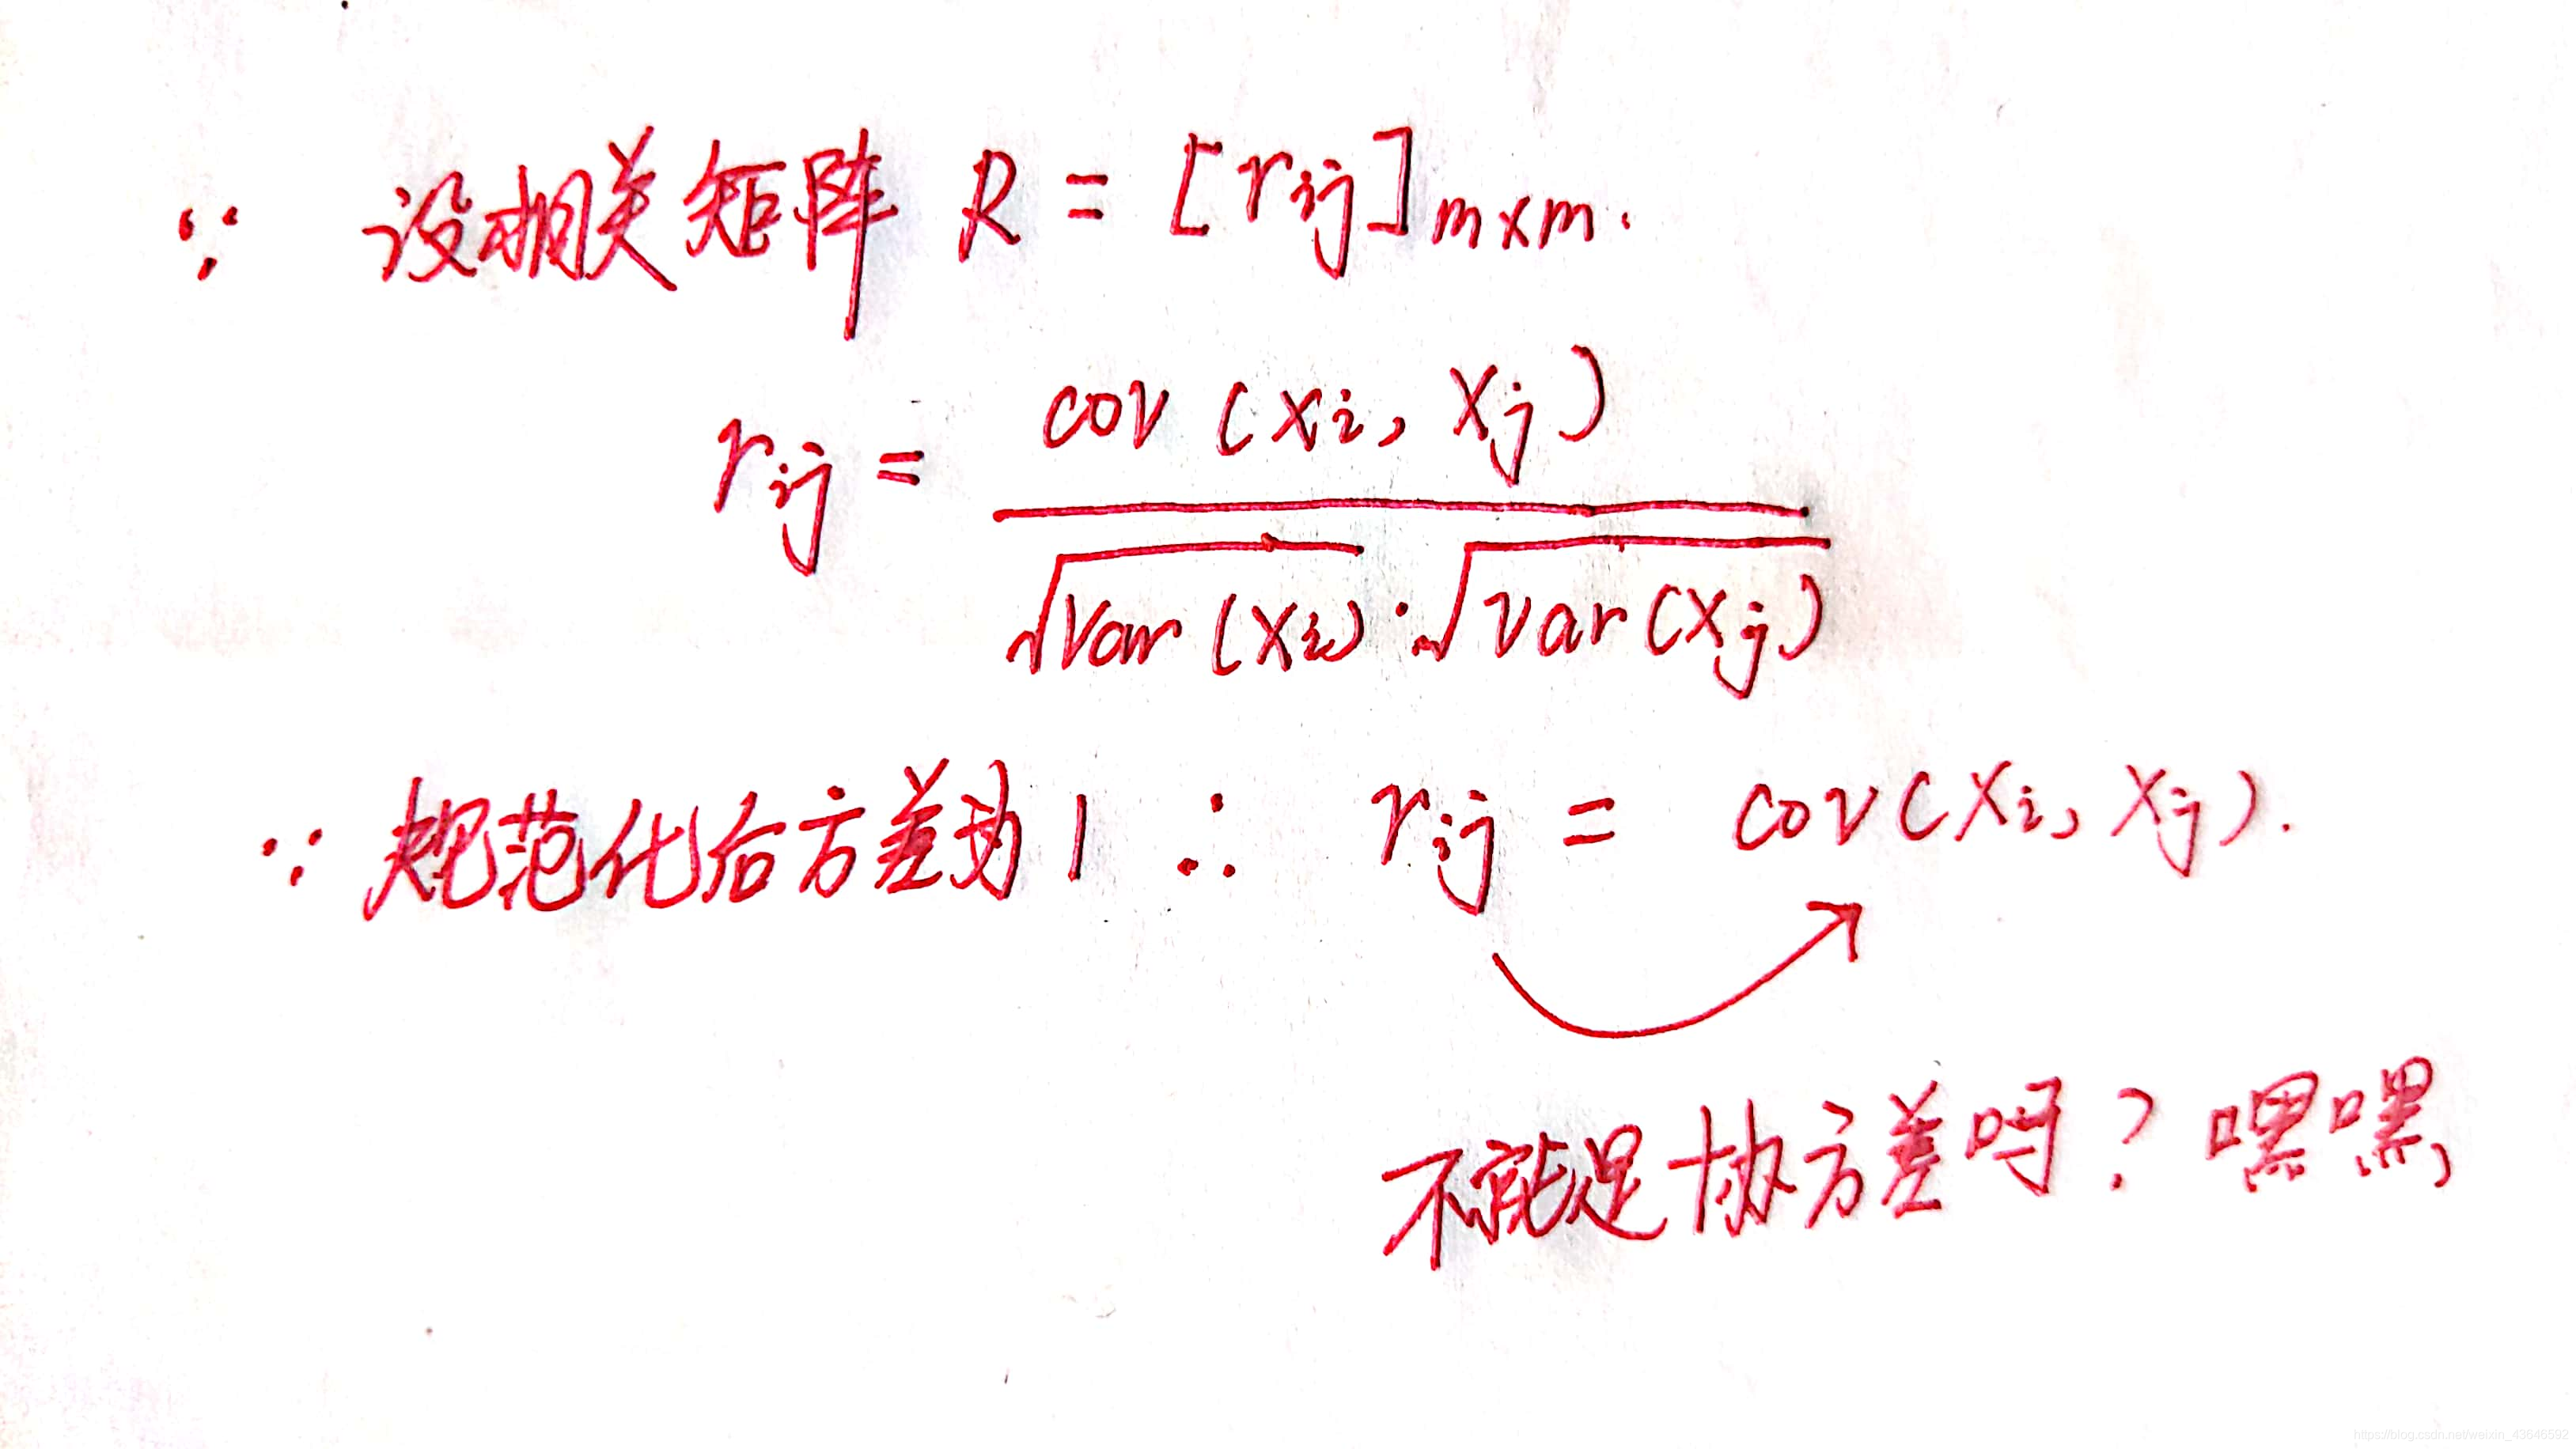 ∵ 设相关矩阵 R = [rij]m×m.
rij = cov(xi, xj) / √var(xi) · √var(xj)
∵ 规范化后方差为1 ∴ rij = cov(xi, xj).
不就是协方差吗？嘿嘿
https://blog.csdn.net/weixin_43646592